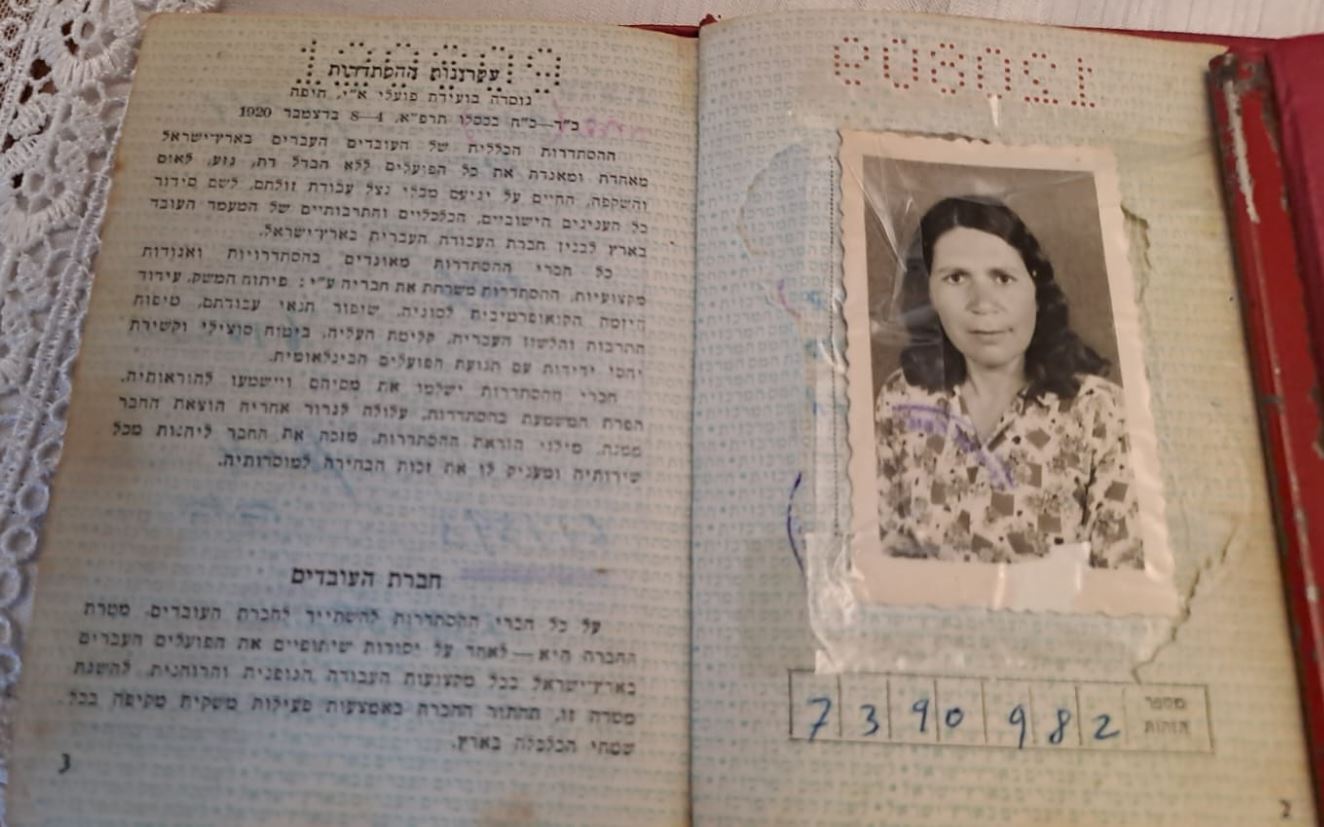 7 3 9 0 9 8 2
מספר
הזהות
2
120809
עקרונות ההסתדרות
נוסחה בועידת פועלי א"י, חיפה
כ"ד—כ"ח בכסלו תרפ"א, 4—8 בדצמבר 1920
ההסתדרות הכללית של העובדים העברים בארץ־ישראל
מאחדת ומאגדת את כל הפועלים ללא הבדל דת, גזע, לאום
והשקפה, החיים על יגיעם מבלי נצל עבודת זולתם, לשם סידור
כל הענינים הישוביים, הכלכליים והתרבותיים של המעמד העובד
בארץ לבנין חברת העבודה העברית בארץ־ישראל.
כל חברי ההסתדרות מאוגדים בהסתדרויות ואגודות
מקצועיות. ההסתדרות משרתת את חבריה ע"י: פיתוח המשק, עידוד
היזמה הקואופרטיבית לסוגיה, שיפור תנאי עבודתם, טיפוח
התרבות והלשון העברית, קליטת העליה, ביטוח סוציאלי וקשירת
יחסי ידידות עם תנועת הפועלים הבינלאומית.
חברי ההסתדרות ישלמו את מסיהם ויישמעו להוראותיה.
הפרת המשמעת בהסתדרות, עלולה לגרור אחריה הוצאת החבר
ממנה. מילוי הוראת ההסתדרות, מזכה את החבר ליהנות מכל
שירותיה ומעניק לו את זכות הבחירה למוסדותיה.
חברת העובדים
על כל חברי ההסתדרות להשתייך לחברת העובדים. מטרת
החברה היא — לאחד על יסודות שיתופיים את הפועלים העברים
בארץ־ישראל בכל מקצועות העבודה הגופנית והרוחנית. להשגת
מטרה זו, תחתור החברה באמצעות פעילות משקית מקיפה בכל
שטחי הכלכלה בארץ.
3